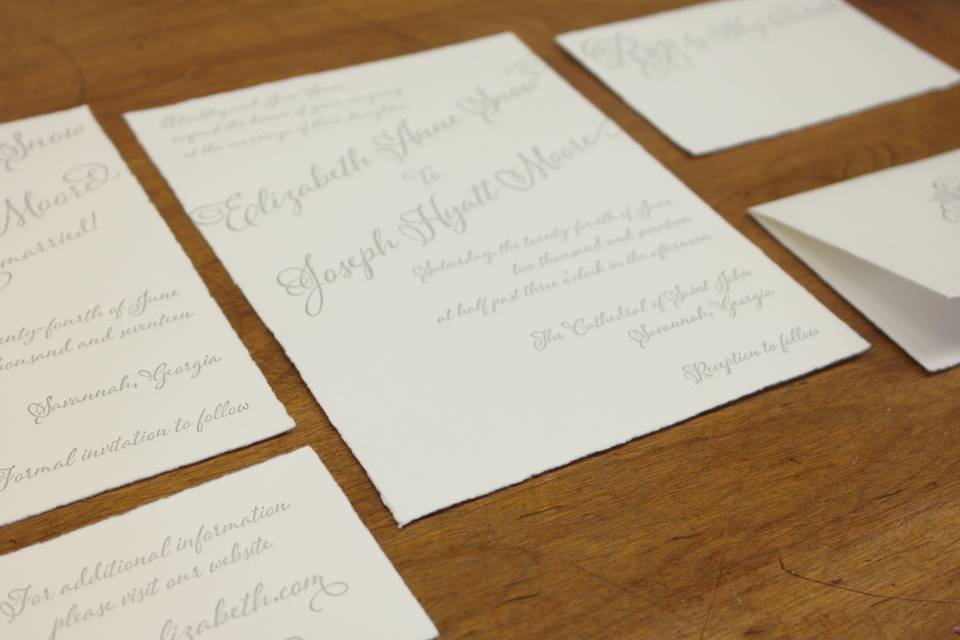 Snow
Moore
married!
enty-fourth of June
housand and seventeen
Savannah, Georgia
Formal invitation to follow
and Jane Snow
request the honor of your company
at the marriage of their daughter
Elizabeth Anne Snow
To
Joseph Hyatt Moore
Saturday, the twenty-fourth of June
two thousand and seventeen
at half past three o'clock in the afternoon
The Cathedral of Saint John
Savannah, Georgia
Reception to follow
For additional information
please visit our website
lizabeth.com
by